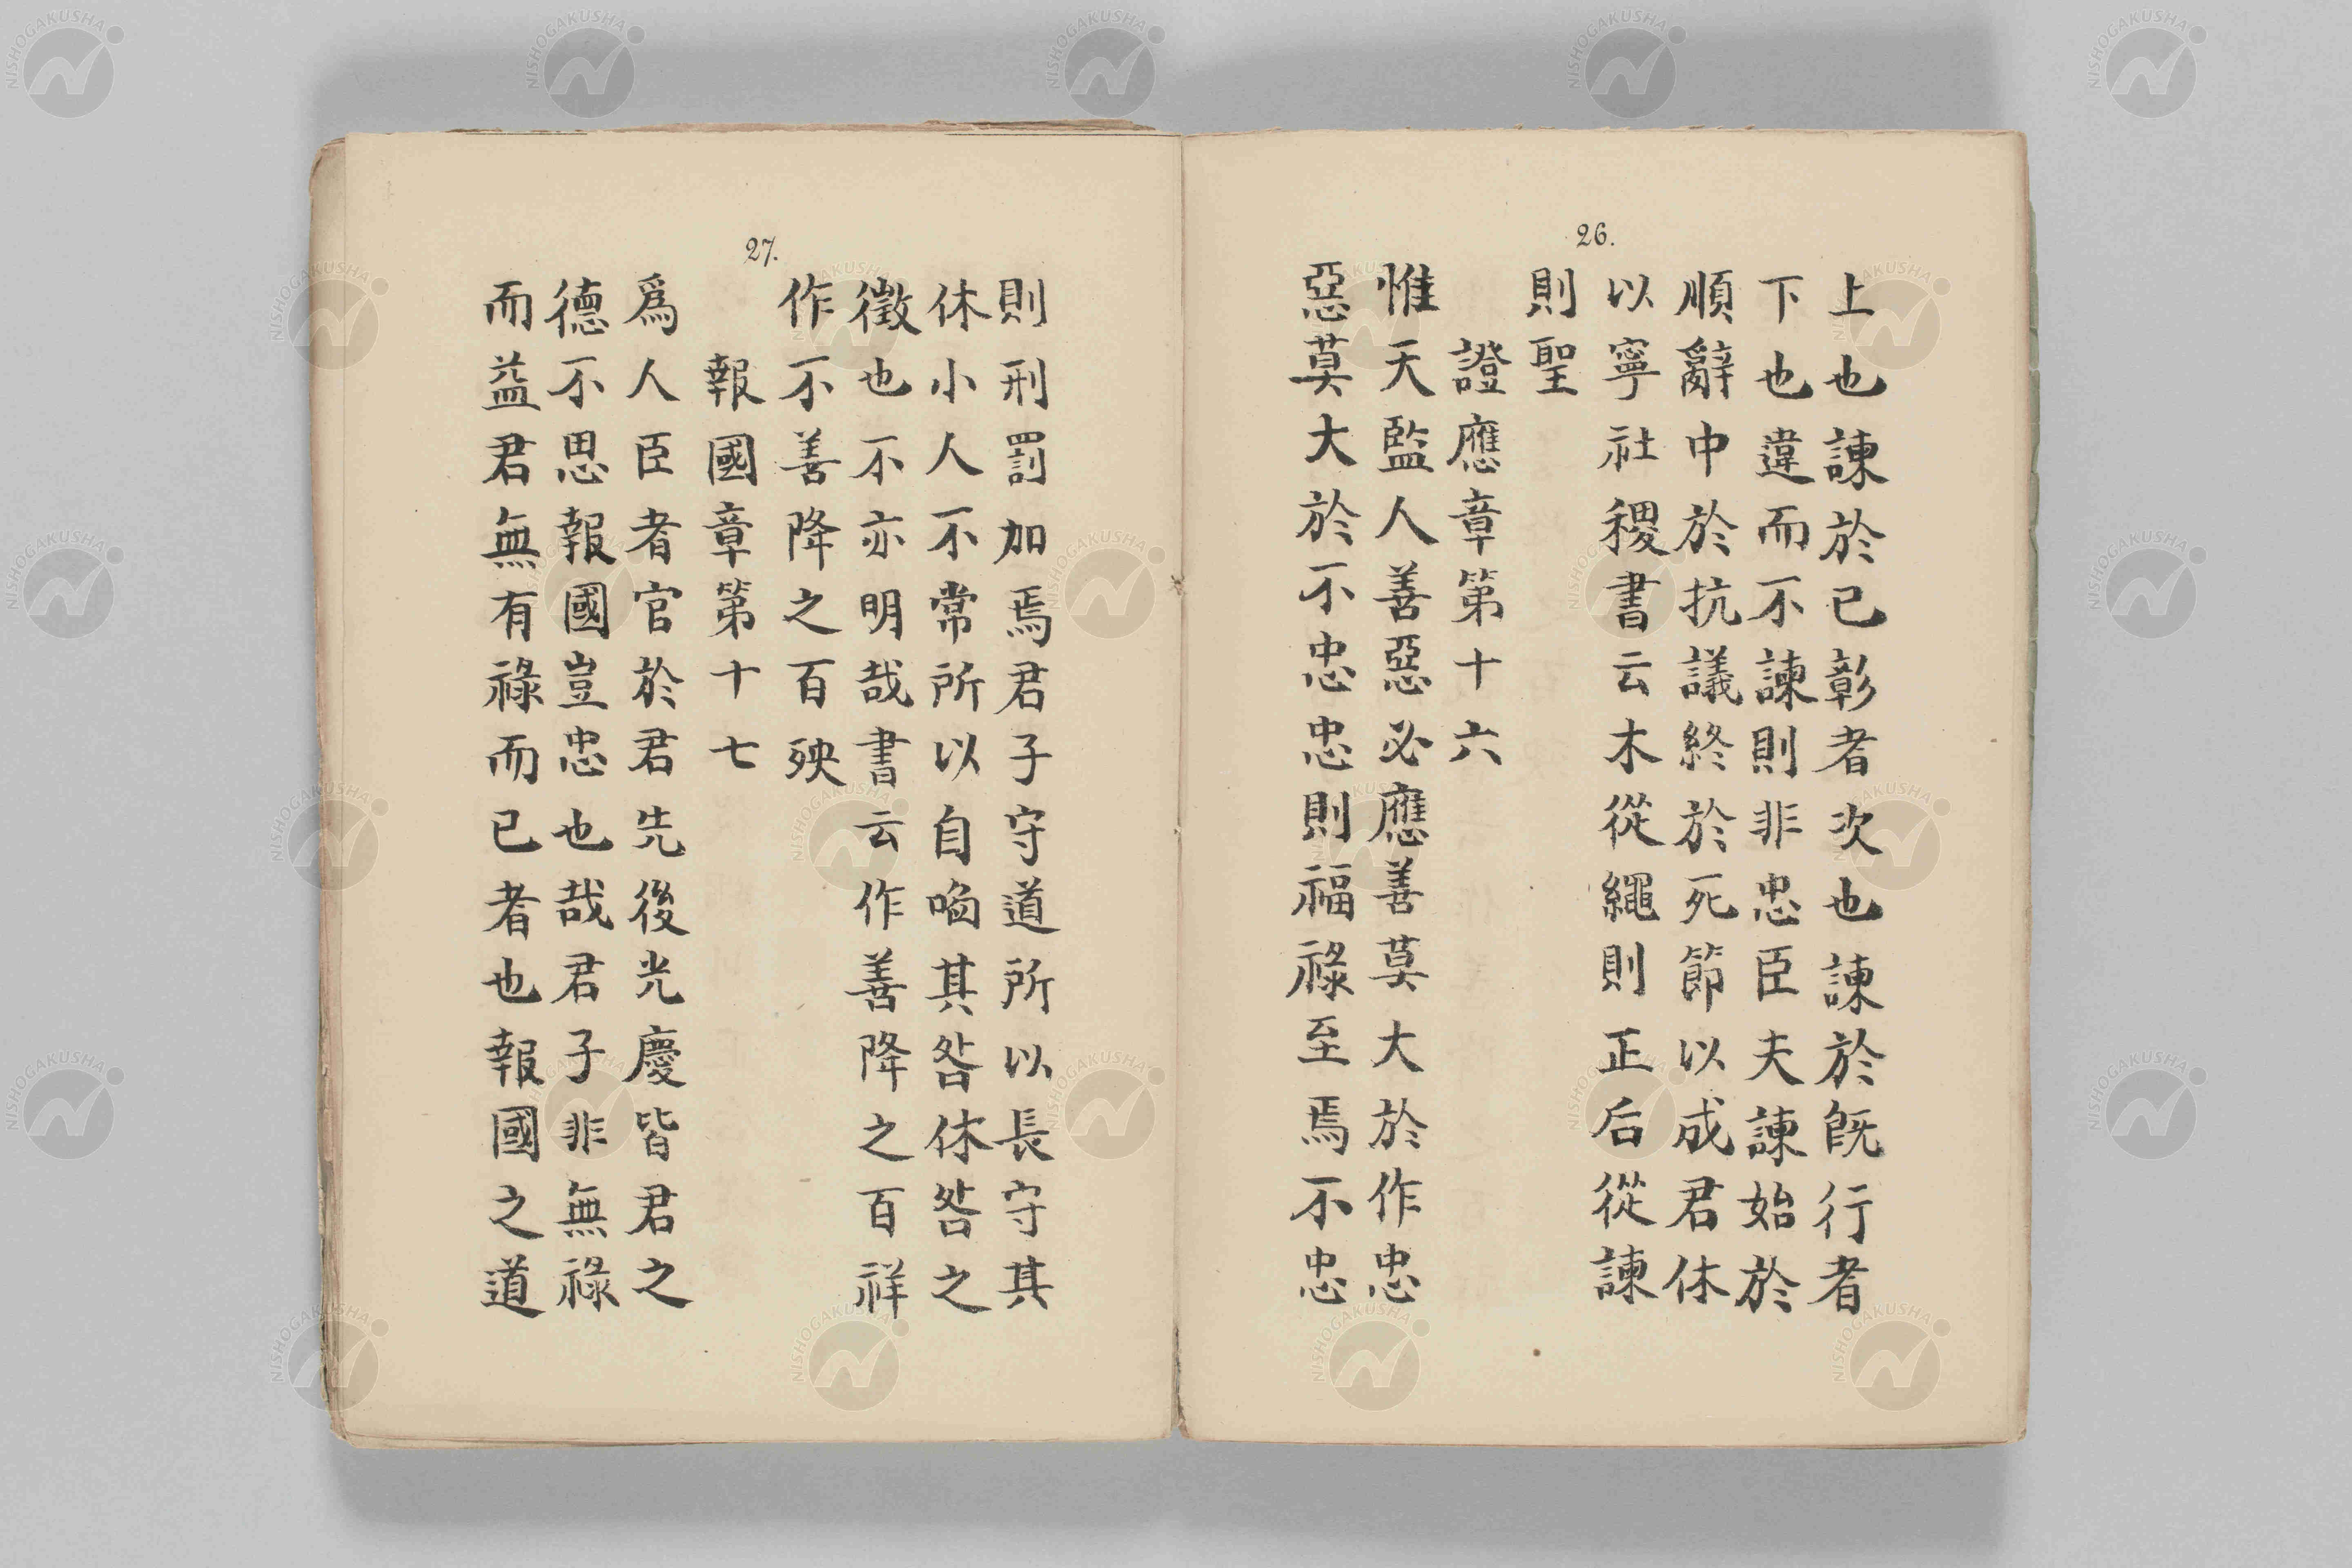 26.
上也諫於已彰者次也諫於既行者
下也違而不諫則非忠臣夫諫始於
順辭中於抗議終於死節以成君休
以寧社稷書云木從繩則正后從諫
則聖
證應章第十六
惟天監人善惡必應善莫大於作忠
惡莫大於不忠忠則福祿至焉不忠
27.
則刑罰加焉君子守道所以長守其
休小人不常所以自䧟其咎休咎之
徵也不亦明哉書云作善降之百祥
作不善降之百殃
報國章第十七
爲人臣者官於君先後光慶皆君之
德不思報國豈忠也哉君子非無祿
而益君無有祿而已者也報國之道
NISHOGAKUSHA